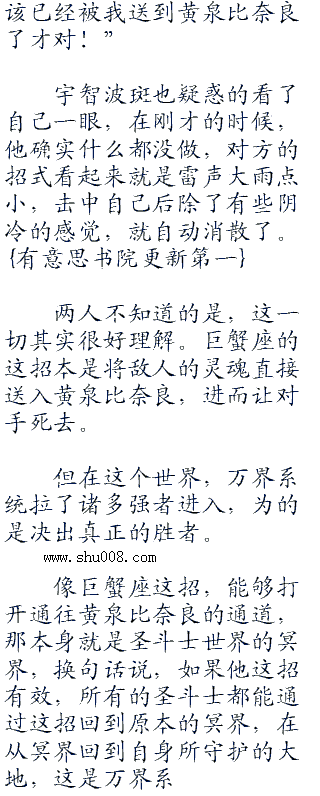 该已经被我送到黄泉比奈良
了才对！”
宇智波斑也疑惑的看了
自己一眼，在刚才的时候，
他确实什么都没做，对方的
招式看起来就是雷声大雨点
小，击中自己后除了有些阴
冷的感觉，就自动消散了。
{有意思书院更新第一}
两人不知道的是，这一
切其实很好理解。巨蟹座的
这招本是将敌人的灵魂直接
送入黄泉比奈良，进而让对
手死去。
但在这个世界，万界系
统拉了诸多强者进入，为的
是决出真正的胜者。
www.shu008.com
像巨蟹座这招，能够打
开通往黄泉比奈良的通道，
那本身就是圣斗士世界的冥
界，换句话说，如果他这招
有效，所有的圣斗士都能通
过这招回到原本的冥界，在
从冥界回到自身所守护的大
地，这是万界系